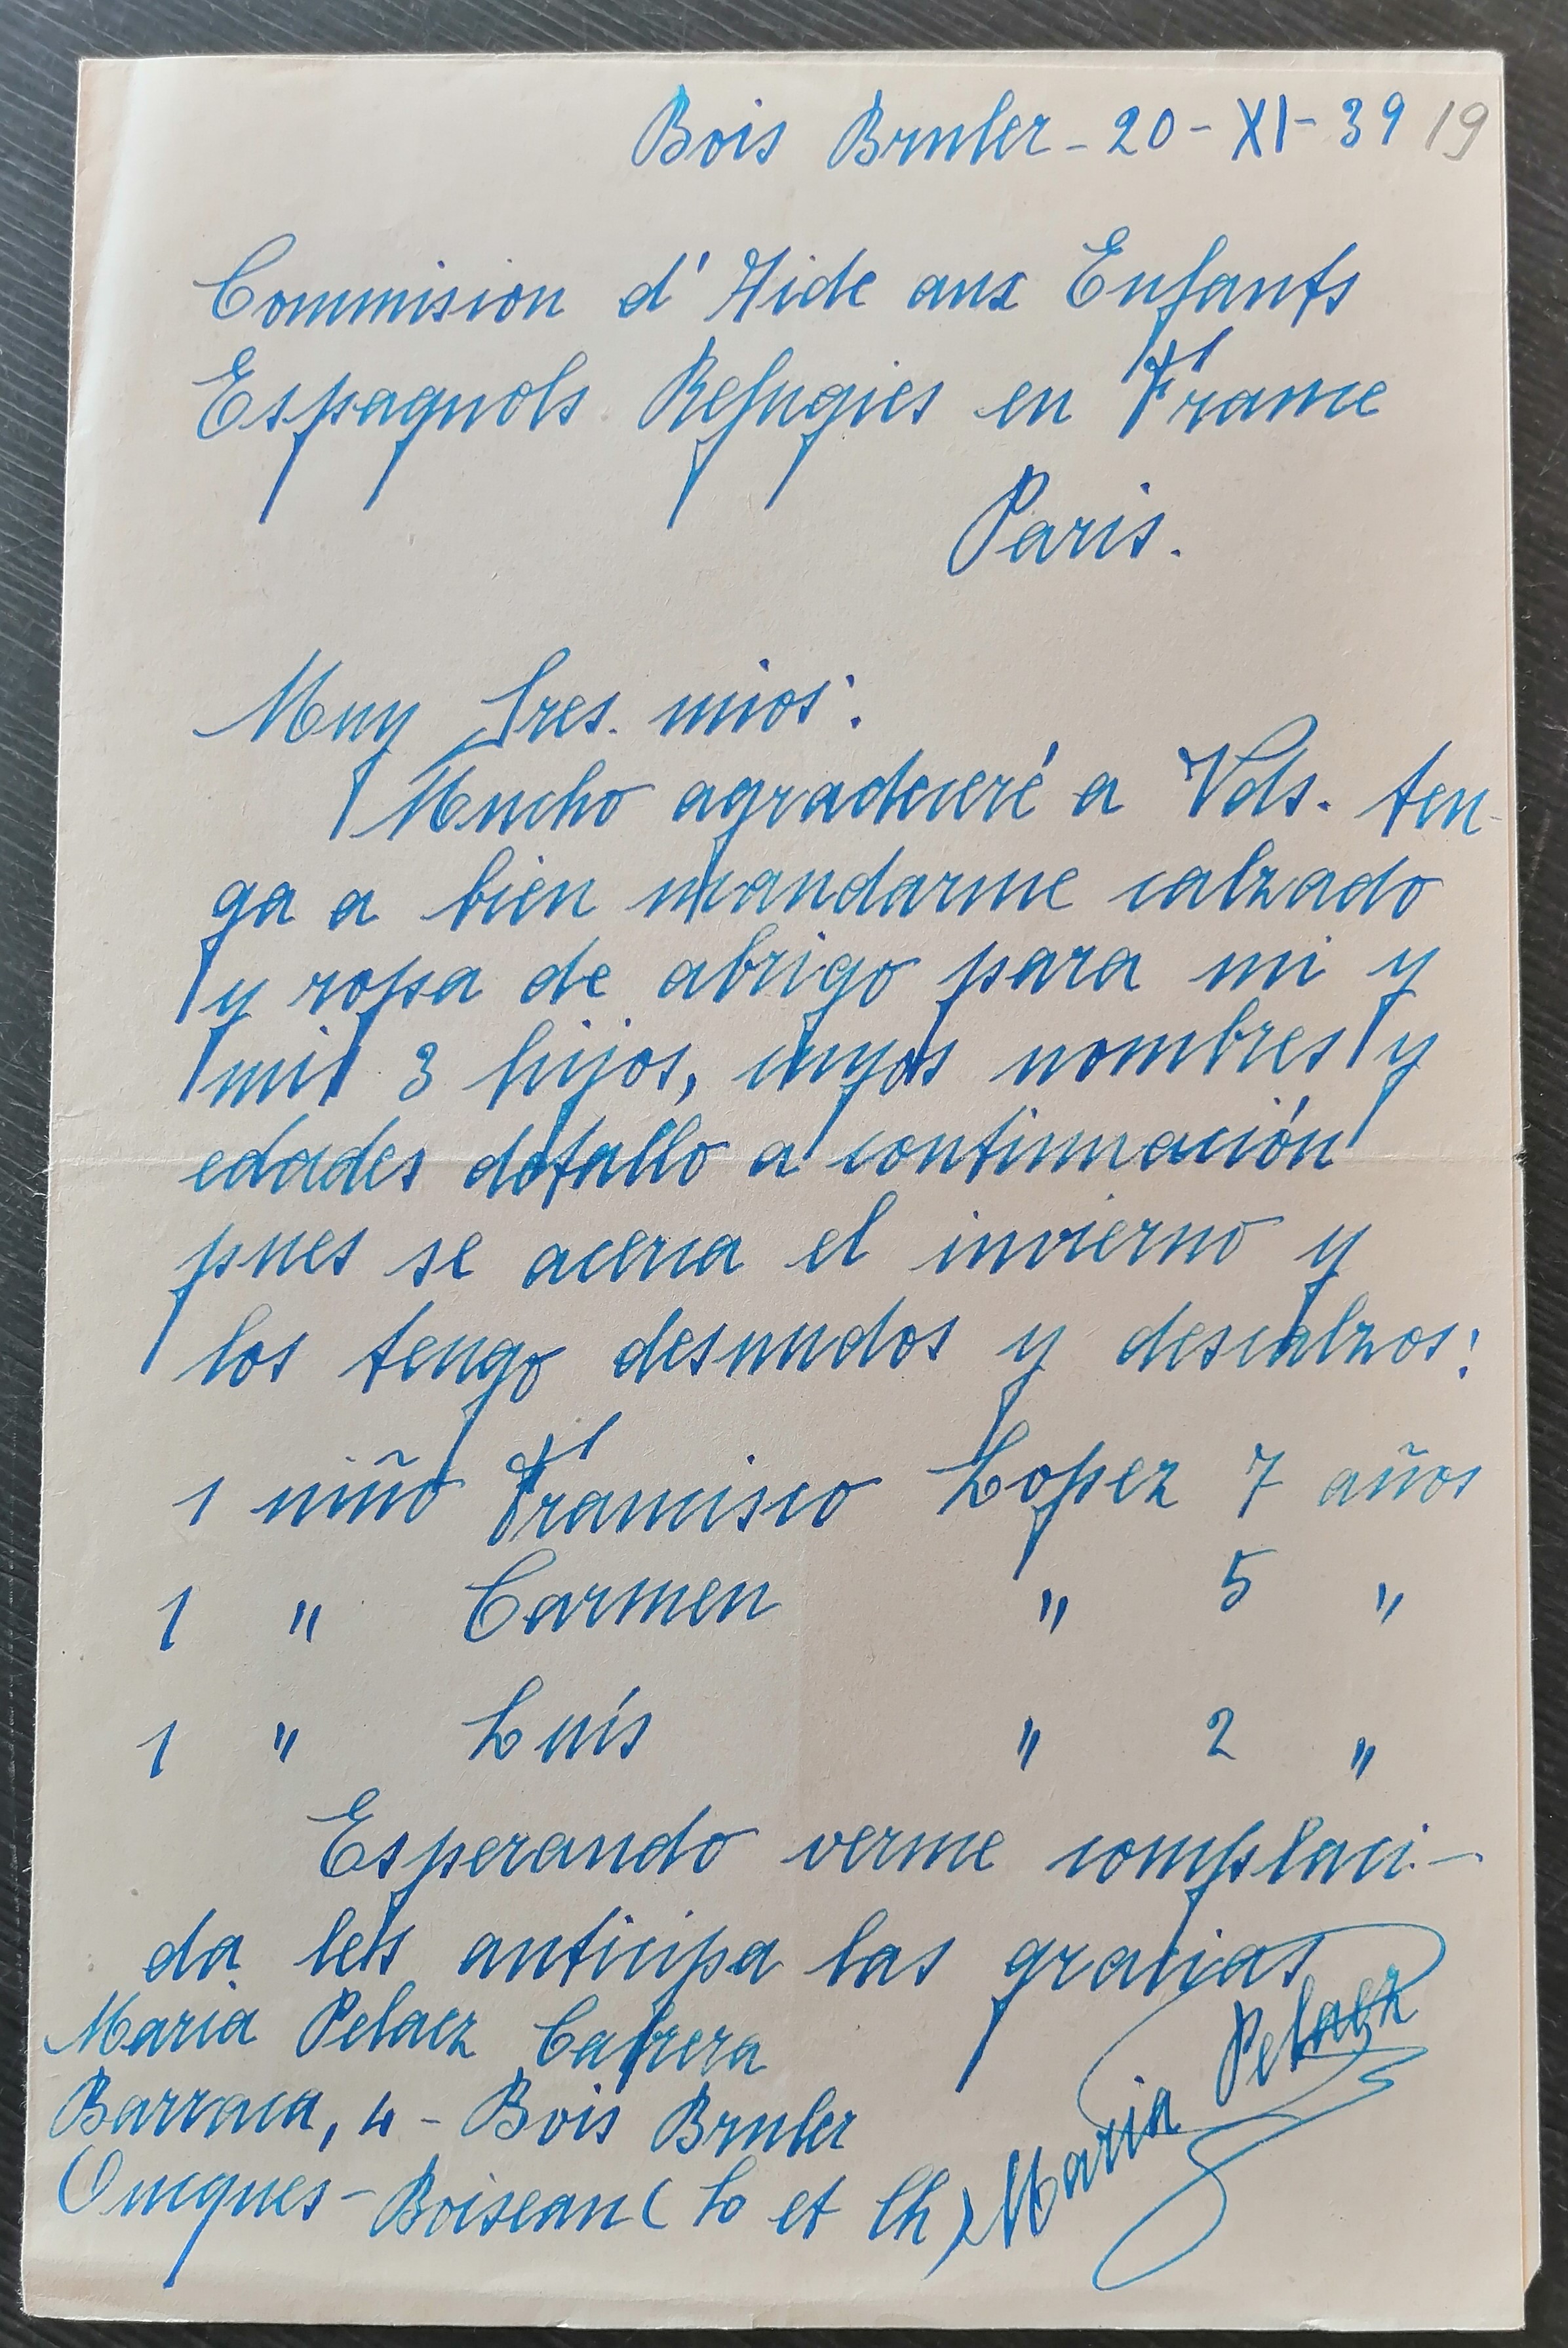 Bois Bruler - 20 - XI - 39 19
Commision d'Aide aux Enfants
Espagnols Refugies en France
Paris.
Muy Sres. mios:
Mucho agradeceré a Vds. ten-
ga a bien mandarme calzado
y ropa de abrigo para mi y
mis 3 hijos, cuyos nombres y
edades detallo a continuación
pues se acerca el invierno y
los tengo desnudos y descalzos:
1 niño Francisco Lopez 7 años
1 " Carmen " 5 "
1 " Luís " 2 "
Esperando verme complaci-
da les anticipa las gracias
Maria Pelaez
Maria Pelaez Cabrera
Barraca, 4 - Bois Bruler
Oucques - Boiseau (Lo et Ch)